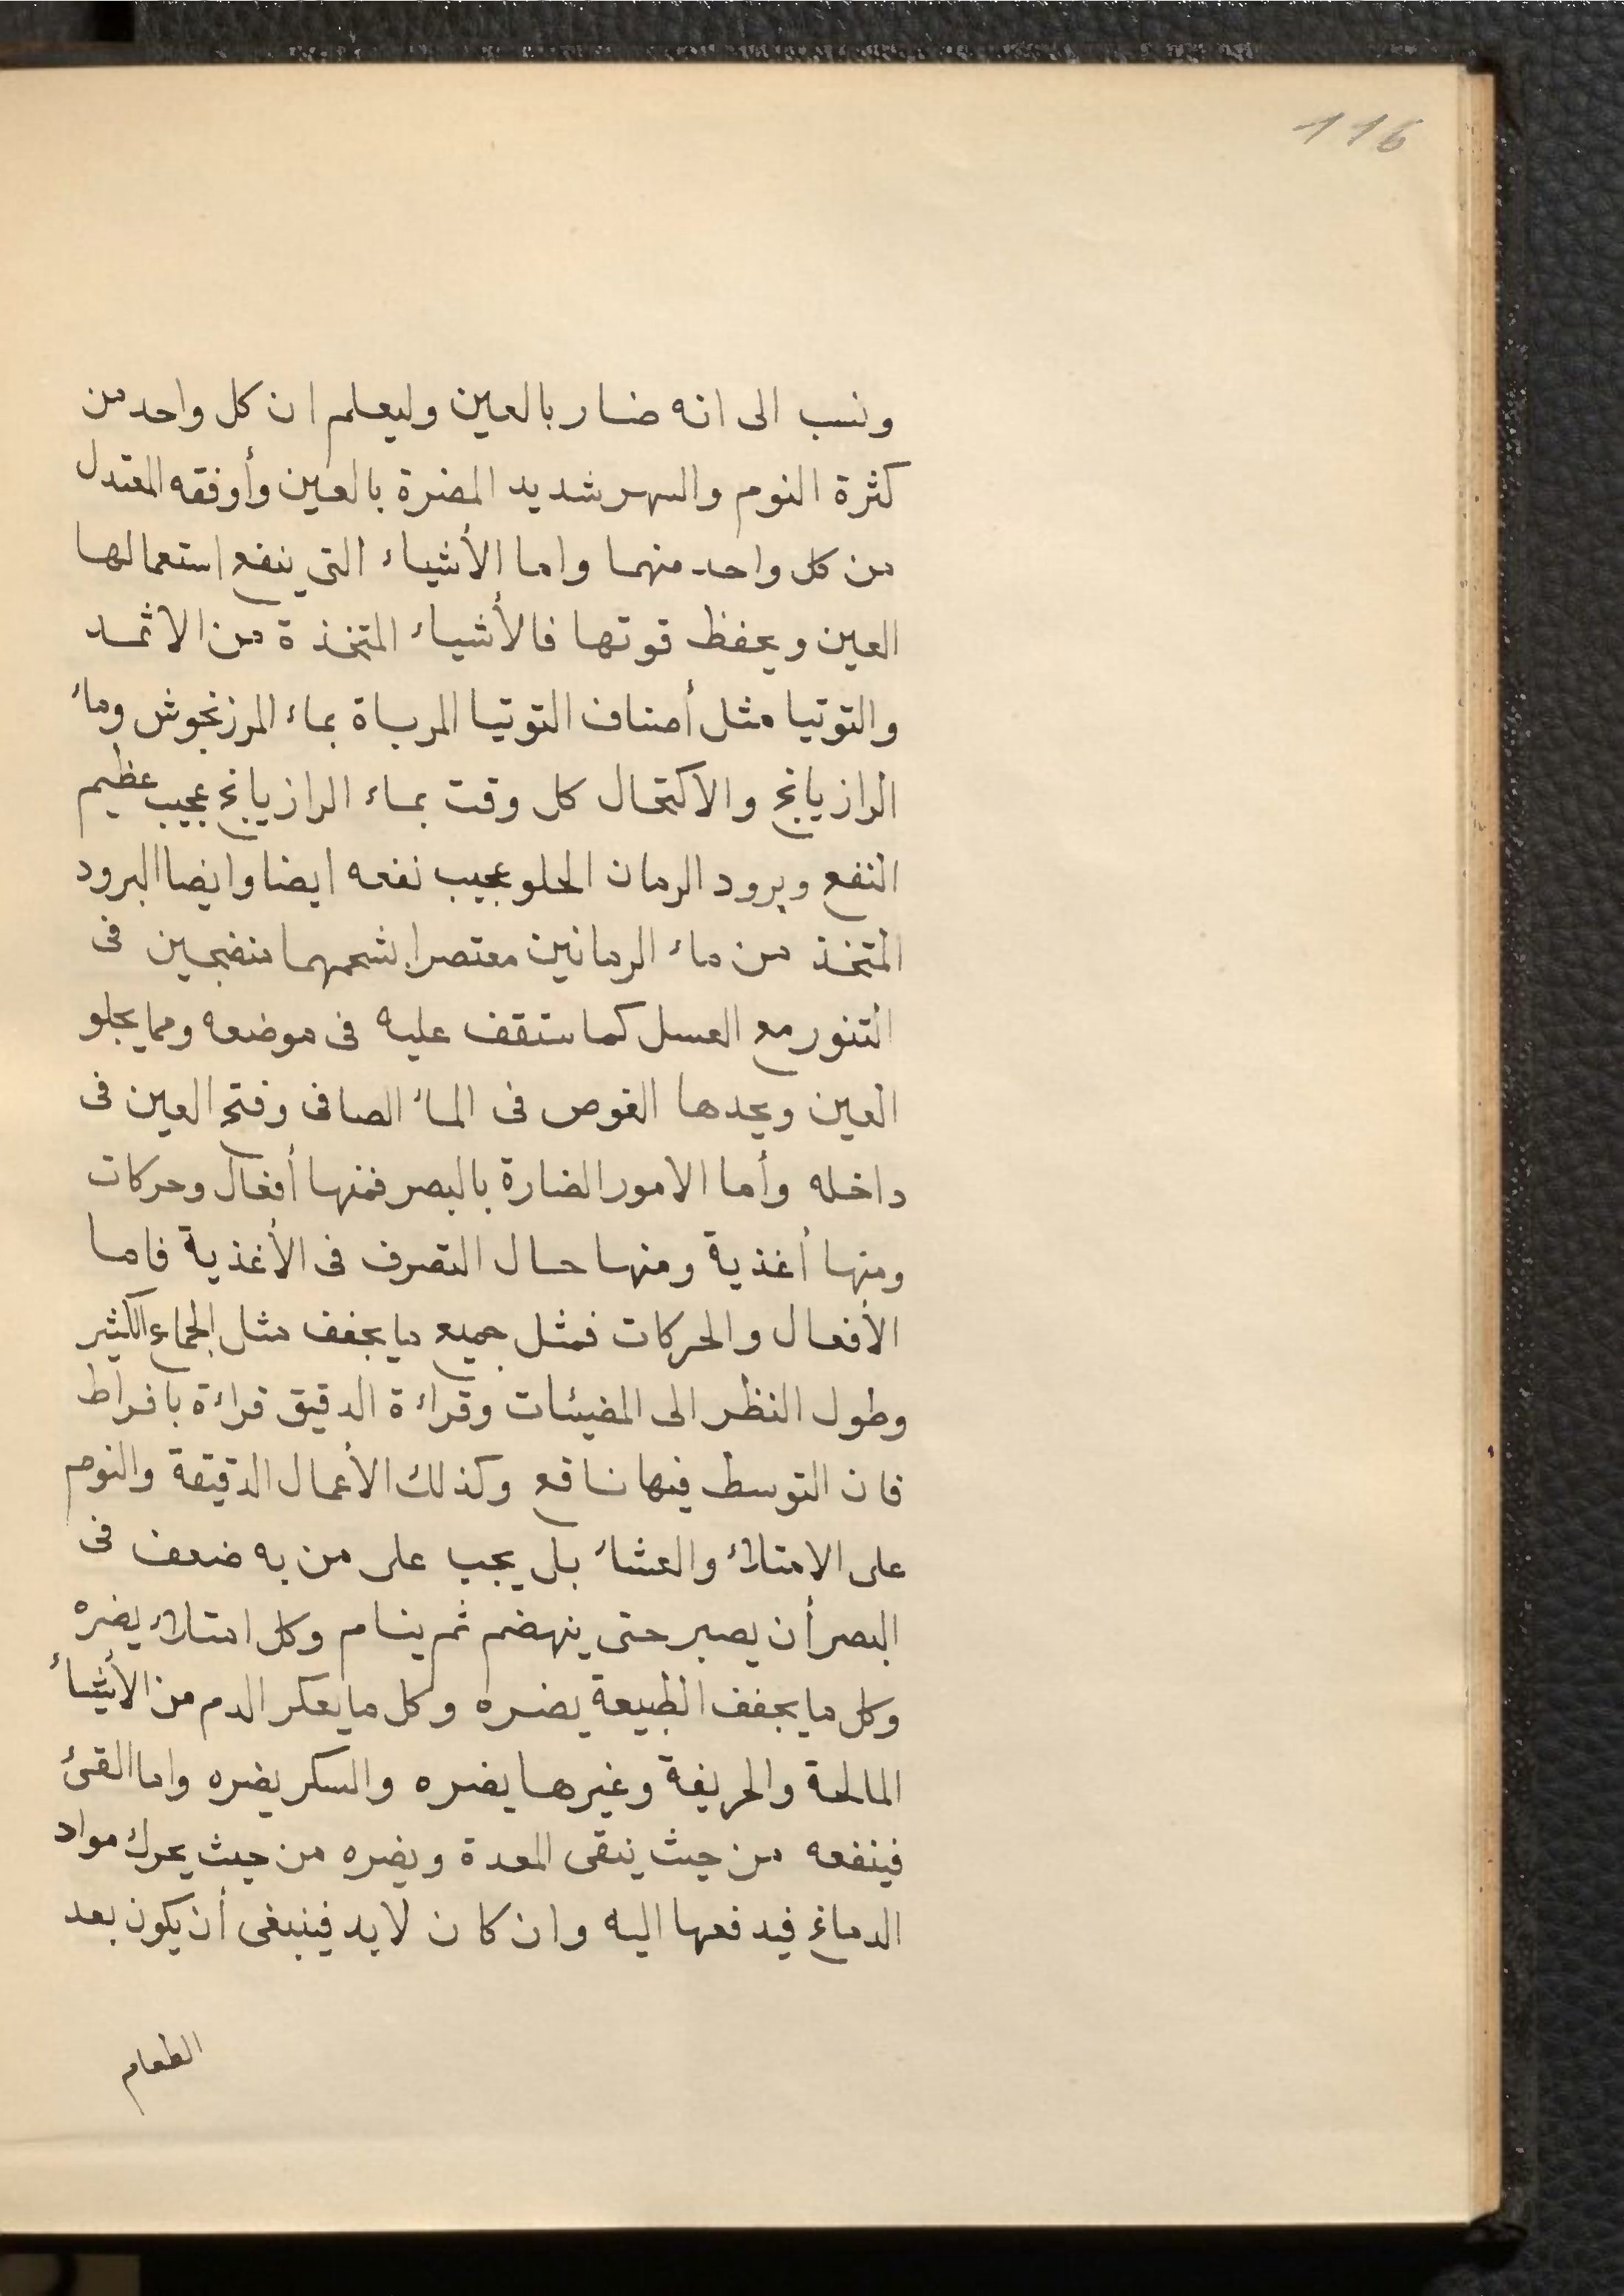 116
ونسب الى انه ضار بالعين وليعلم ان كل واحد من
كثرة النوم والسهر شديد المضرة بالعين وأوفقه المعتدل
من كل واحد منهما واما الأشياء التى ينفع استعمالها
العين ويحفظ قوتها فالأشياء المتخذة من الاثمد
والتوتيا مثل أصناف التوتيا المرباة بماء المرزنجوش وماء
الرازيانج والاكتحال كل وقت بماء الرازيانج عجيب عظيم
النفع وبرود الرمان الحلو عجيب نفعه ايضا وايضا البرود
المتخذ من ماء الرمانين معتصرا بشحمهما منضجين فى
التنور مع العسل كما ستقف عليه فى موضعه ومما يجلو
العين ويحدها الغوص فى الماء الصافى وفتح العين فى
داخله وأما الامور الضارة بالبصر فمنها أفعال وحركات
ومنها أغذية ومنها حال التصرف فى الأغذية فاما
الأفعال والحركات فمثل جميع ما يجفف مثل الجماع الكثير
وطول النظر الى المضيئات وقراءة الدقيق قراءة بافراط
فان التوسط فيها نافع وكذلك الأعمال الدقيقة والنوم
على الامتلاء والعشاء بل يجب على من به ضعف فى
البصر أن يصبر حتى ينهضم ثم ينام وكل امتلاء يضره
وكل ما يجفف الطبيعة يضره وكل ما يعكر الدم من الأشياء
المالحة والحريفة وغيرها يضره والسكر يضره واما القئ
فينفعه من حيث ينقى المعدة ويضره من حيث يحرك مواد
الدماغ فيدفعها اليه وان كان لابد فينبغى أن يكون بعد
الطعام